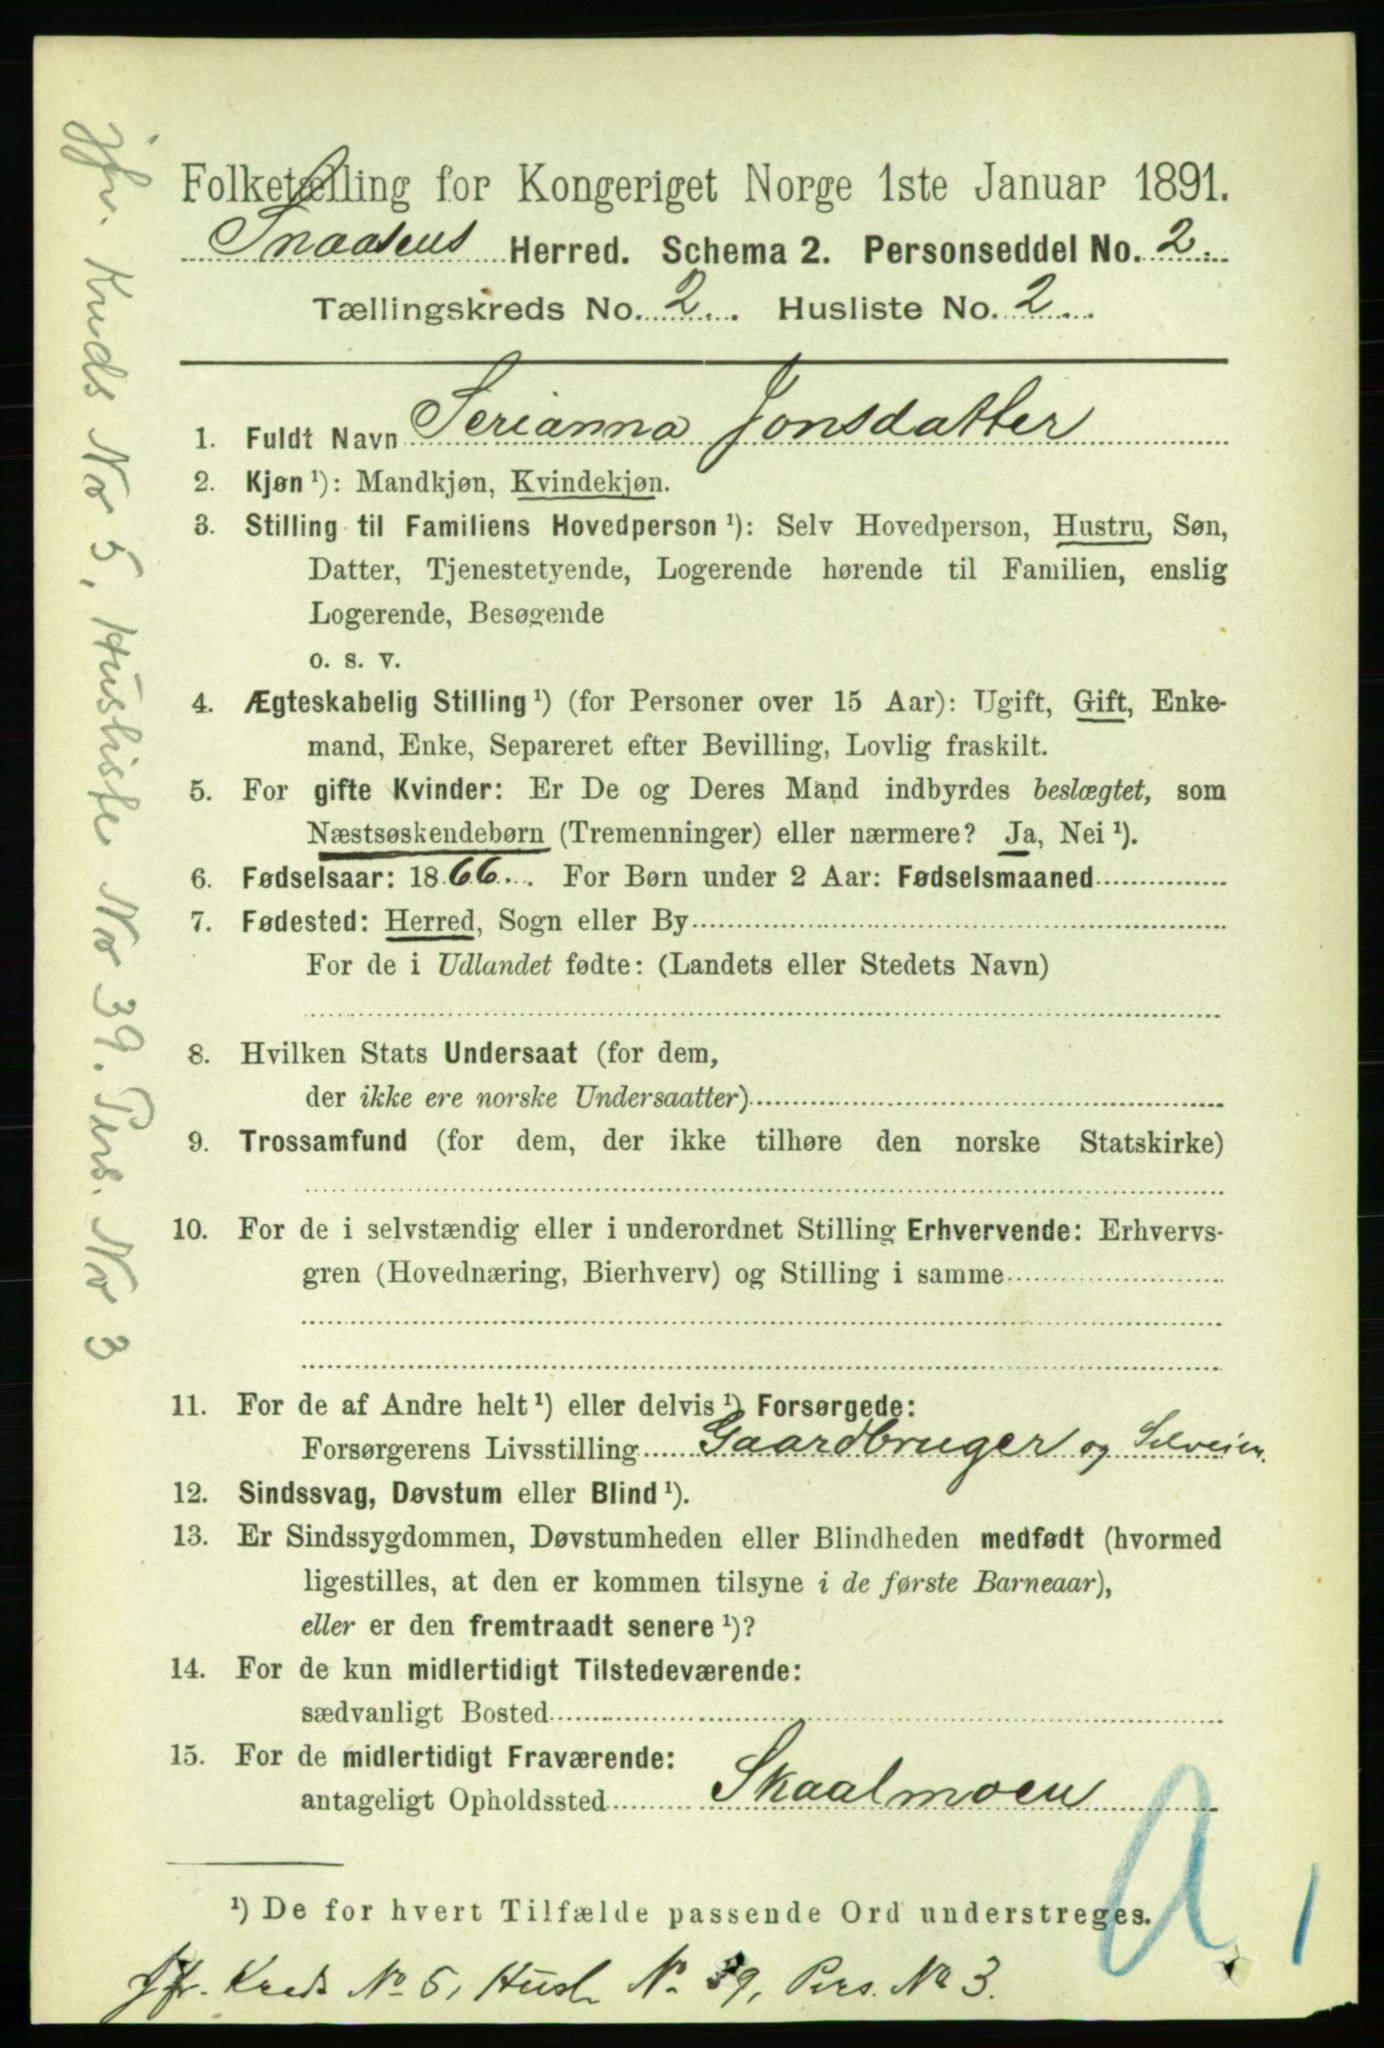 Folketælling for Kongeriget Norge 1ste Januar 1891.
Snaasens Herred. Schema 2. Personseddel No. 2.
Tællingskreds No. 2. Husliste No. 2.
1. Fuldt Navn Serianna Jonsdatter
2. Kjøn ¹): Mandkjøn, Kvindekjøn.
3. Stilling til Familiens Hovedperson ¹): Selv Hovedperson, Hustru, Søn,
Datter, Tjenestetyende, Logerende hørende til Familien, enslig
Logerende, Besøgende
o. s. v.
4. Ægteskabelig Stilling ¹) (for Personer over 15 Aar): Ugift, Gift, Enke-
mand, Enke, Separeret efter Bevilling, Lovlig fraskilt.
5. For gifte Kvinder: Er De og Deres Mand indbyrdes beslægtet, som
Næstsøskendebørn (Tremenninger) eller nærmere? Ja, Nei ¹).
6. Fødselsaar: 1866. For Børn under 2 Aar: Fødselsmaaned
7. Fødested: Herred, Sogn eller By
For de i Udlandet fødte: (Landets eller Stedets Navn)
8. Hvilken Stats Undersaat (for dem,
der ikke ere norske Undersaatter)
9. Trossamfund (for dem, der ikke tilhøre den norske Statskirke)
10. For de i selvstændig eller i underordnet Stilling Erhvervende: Erhvervs-
gren (Hovednæring, Bierhverv) og Stilling i samme
11. For de af Andre helt ¹) eller delvis ¹) Forsørgede:
Forsørgerens Livsstilling Gaardbruger og Selveier.
12. Sindssvag, Døvstum eller Blind ¹).
13. Er Sindssygdommen, Døvstumheden eller Blindheden medfødt (hvormed
ligestilles, at den er kommen tilsyne i de første Barneaar),
eller er den fremtraadt senere ¹)?
14. For de kun midlertidigt Tilstedeværende:
sædvanligt Bosted
15. For de midlertidigt Fraværende:
antageligt Opholdssted Skaalmoen
¹) De for hvert Tilfælde passende Ord understreges.
A 1
Jfr. Kreds No 5, Husl. No. 39, Pers. No 3.
jfr. Kreds No 5, Husliste No 39. Pers. No 3